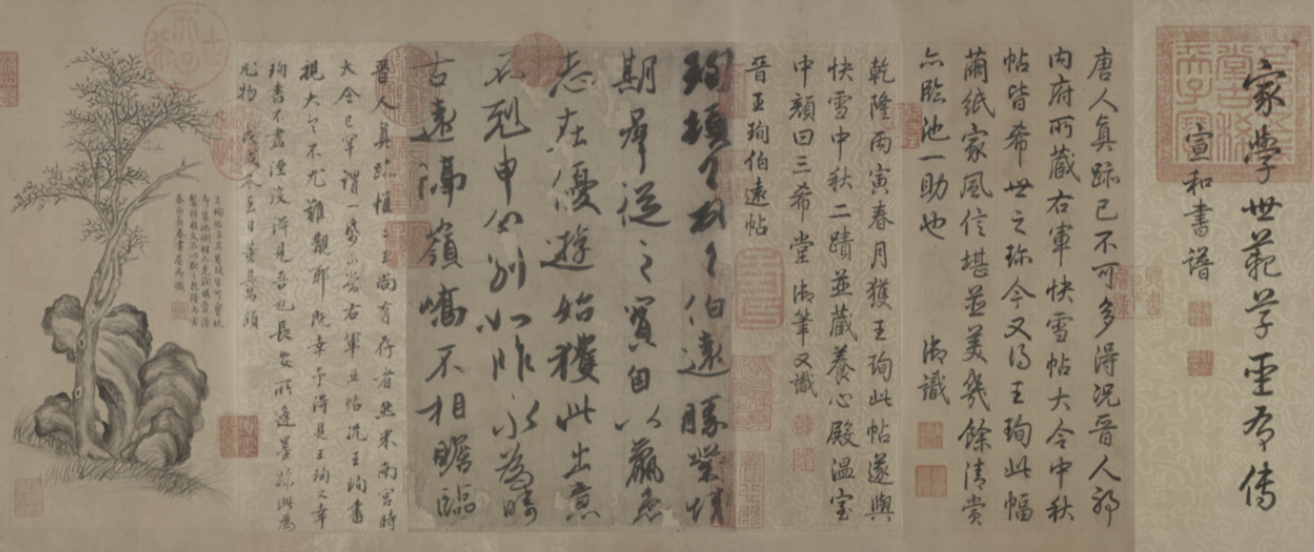 家學世範草聖有傳
宣和書譜
唐人真跡已不可多得況晉人耶
內府所藏右軍快雪帖大令中秋
帖皆希世之珍今又得王珣此幅
繭紙家風信堪並美幾餘清賞
亦臨池一助也 御識
乾隆丙寅春月獲王珣此帖遂與
快雪中秋二蹟並藏養心殿溫室
中顏曰三希堂 御筆又識
晉王珣伯遠帖
珣頓首頓首伯遠勝業情
期群從之寶自以羸患
志在優遊始獲此出意
不剋申分別如昨永為疇
古遠隔嶺嶠不相瞻臨
晉人真跡惟二王尚有存者然米南宮時
大令已罕謂一紙可當右軍五帖況王珣書
視大令不尤難覯耶既幸予得見王珣又幸
珣書不盡湮沒得見吾也長安所逢墨跡此為
尤物 戊戌冬至日董其昌題
王珣帖與其昌跋皆可寶玩
即裝池側理亦光潤堪愛漫
製枯枝文石以配之乾隆丙寅
春正長春書屋御識